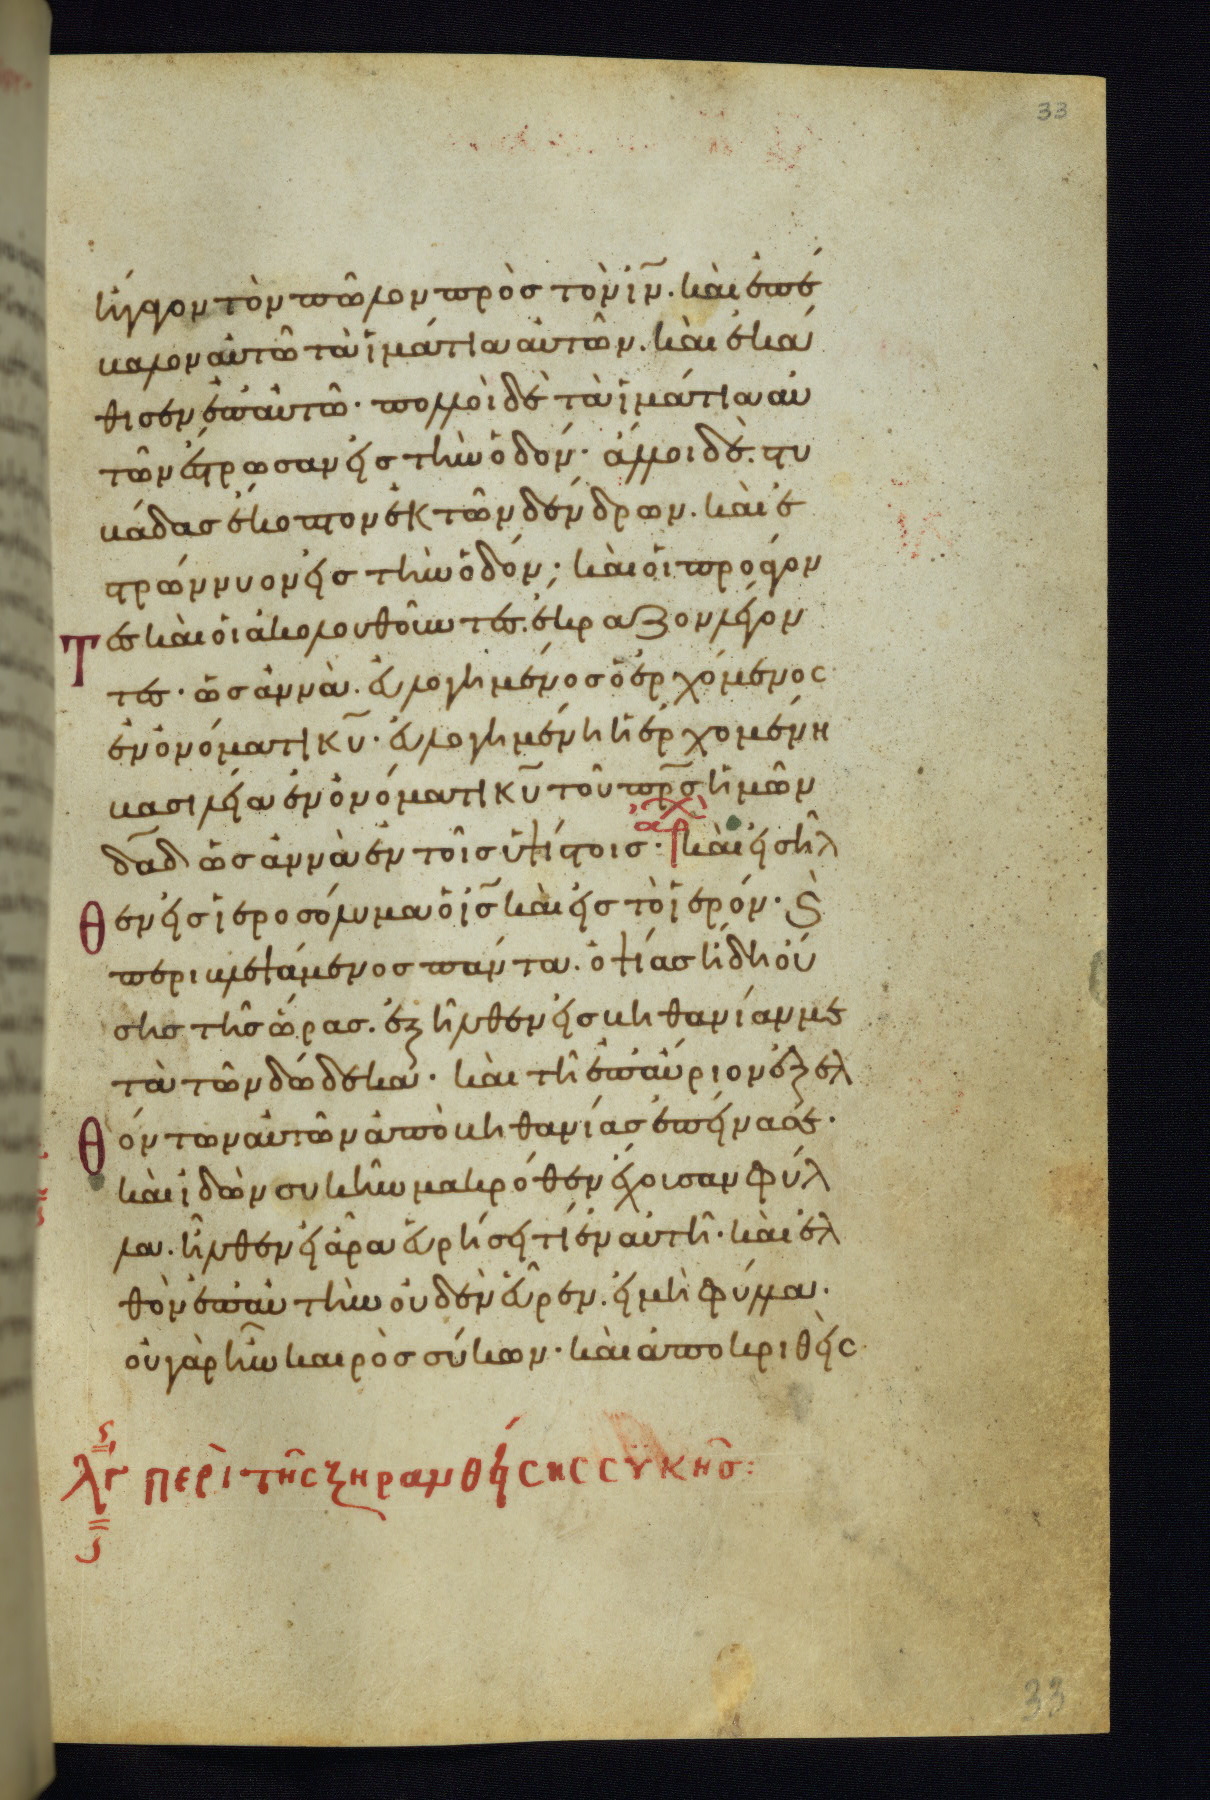 33
ἤγαγον τὸν πῶλον πρὸς τὸν ἰ̅ν̅. καὶ ἐπέ
βαλον αὐτῶ τὰ ἱμάτια αὐτῶν. καὶ ἐκά
θισεν ἐπ' αὐτῶ· πολλοὶ δὲ τὰ ἱμάτια αὐ
τῶν ἔστρωσαν εἰς τὴν ὁδόν· ἄλλοι δὲ. στι
βάδας ἔκοπτον ἐκ τῶν δένδρων. καὶ ἐ
στρώννυον εἰς τὴν ὁδόν· καὶ οἱ προάγον
τες καὶ οἱ ἀκολουθοῦντες. ἔκραζον λέγον
τες· ὡσαννὰ. εὐλογημένος ὁ ἐρχόμενος
ἐν ὀνόματι κ̅υ̅· εὐλογημένη ἡ ἐρχομένη
βασιλεία ἐν ὀνόματι κ̅υ̅ τοῦ π̅ρ̅ς̅ ἡμῶν
δ̅α̅δ̅ ὡσαννὰ ἐν τοῖς ὑψίστοις· ἀρχὴ καὶ εἰσῆλ
θεν εἰς ἱεροσόλυμα ὁ ἰ̅ς̅ καὶ εἰς τὸ ἱερόν· ϗ
περιβλεψάμενος πάντα. ὀψίας ἤδη οὔ
σης τῆς ὥρας. ἐξῆλθεν εἰς βηθανίαν με
τὰ τῶν δώδεκα· καὶ τῆ ἐπαύριον ἐξελ
θόντων αὐτῶν ἀπὸ βηθανίας ἐπείνασε·
καὶ ἰδὼν συκῆν μακρόθεν ἔχουσαν φύλ
λα. ἦλθεν εἰ ἄρα εὑρήσει τι ἐν αὐτῆ· καὶ ἐλ
θὼν ἐπ' αὐτὴν οὐδὲν εὗρεν. εἰ μὴ φύλλα·
οὐ γὰρ ἦν καιρὸς σύκων· καὶ ἀποκριθεὶς
λγ περὶ τῆς ξηρανθείσης συκῆς:
33